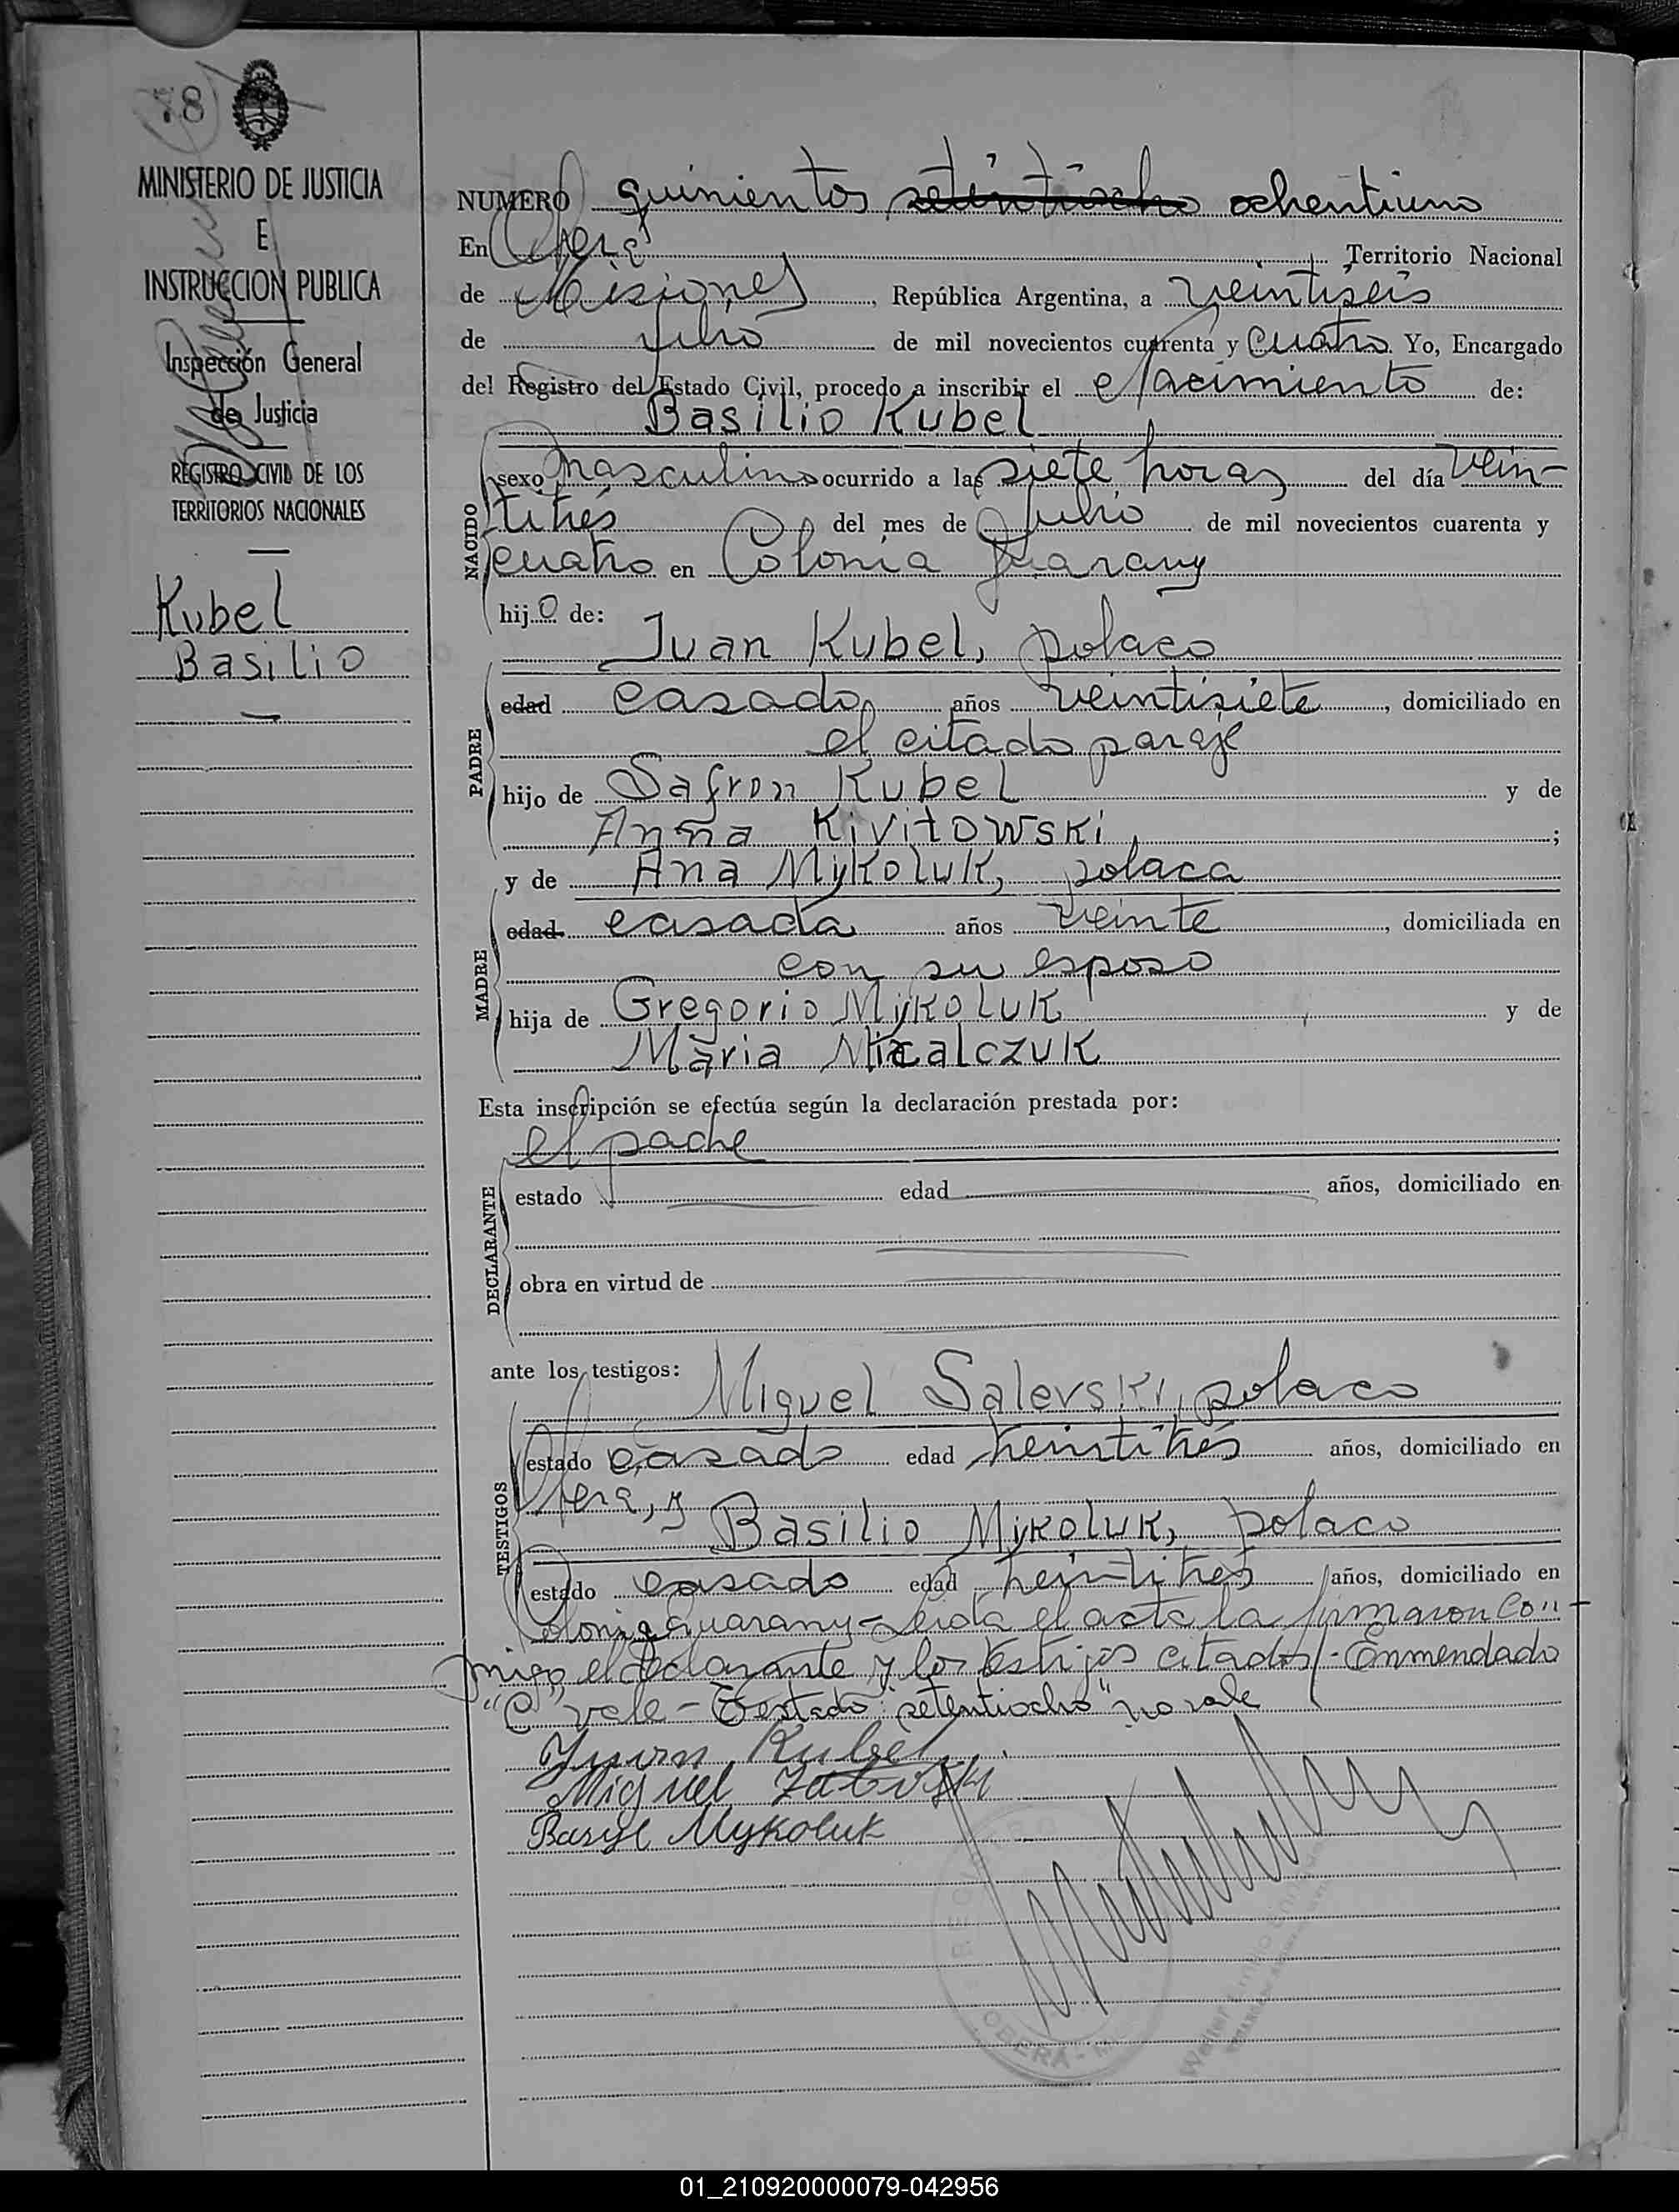 78
MINISTERIO DE JUSTICIA
E
INSTRUCCION PUBLICA
Inspección General
de Justicia
REGISTRO CIVIL DE LOS
TERRITORIOS NACIONALES
Kubel
Basilio
NUMERO quinientos setentiocho ochentiuno
En Oberá Territorio Nacional
de Misiones, República Argentina, a veintiseis
de Julio de mil novecientos cuarenta y cuatro. Yo, Encargado
del Registro del Estado Civil, procedo a inscribir el nacimiento de:
Basilio Kubel
NACIDO
sexo masculino ocurrido a las siete horas del día vein-
titrés del mes de Julio de mil novecientos cuarenta y
cuatro en Colonia Guarany
hijo de:
Juan Kubel, polaco
PADRE
edad casado, años veintisiete, domiciliado en
el citado paraje
hijo de Safron Kubel y de
Anna Kivitowski ;
y de Ana Mykoluk, polaca
MADRE
edad casada años veinte, domiciliada en
con su esposo
hija de Gregorio Mykoluk y de
Maria Micalczuk
Esta inscripción se efectúa según la declaración prestada por:
el padre
DECLARANTE
estado edad años, domiciliado en
obra en virtud de
ante los testigos: Miguel Salevski, polaco
TESTIGOS
estado casado edad treintitrés años, domiciliado en
Oberá, y
Basilio Mykoluk, polaco
estado casado edad treintitrés años, domiciliado en
Colonia Guarany - Leida el acta la firmaron con-
migo, el declarante y los testigos citados - Enmendado
"C" vale - Testado: "setentiocho" no vale
Juan Kubel
Miguel
Bazyl Mykoluk
REGISTRO
OBERA - M
01_210920000079-042956